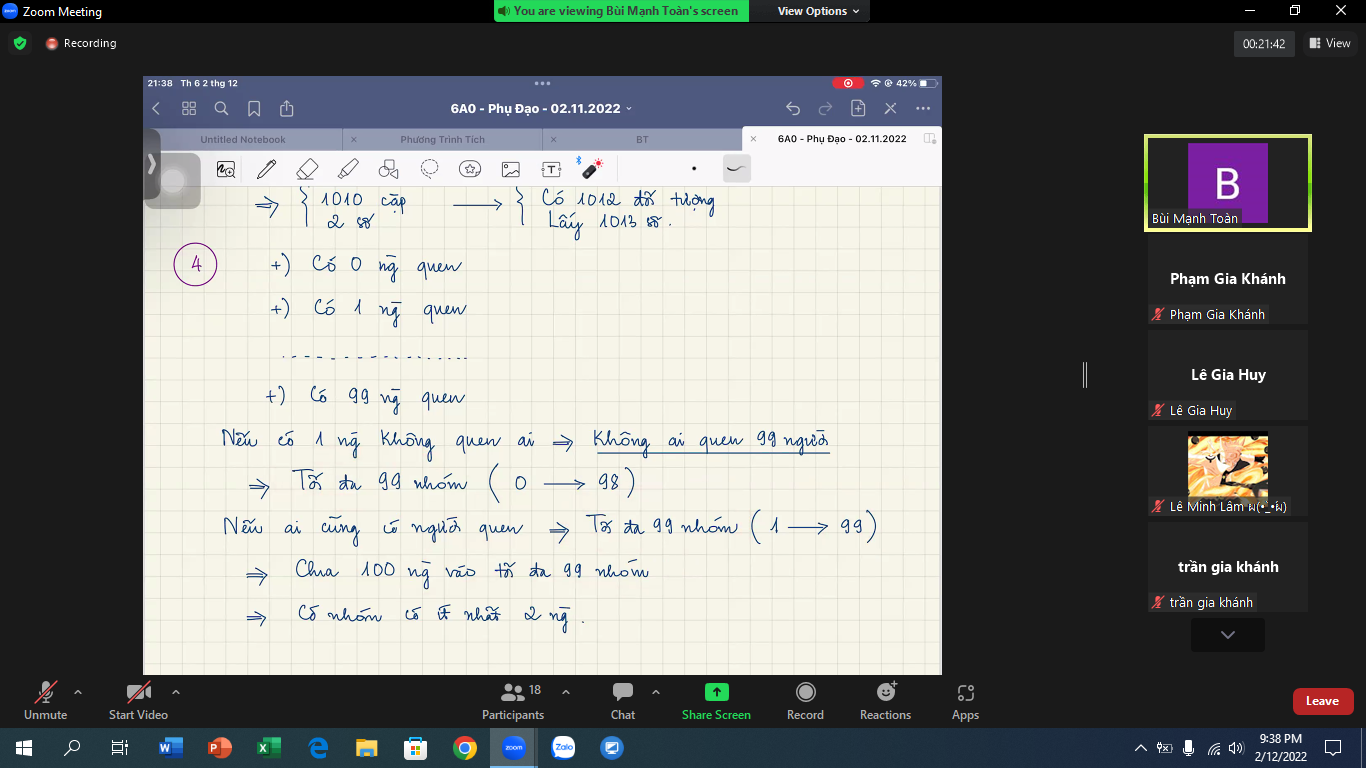 Zoom Meeting
You are viewing Bùi Mạnh Toàn's screen
View Options
Recording
00:21:42
View
21:38 Th 6 2 thg 12
42%
6A0 - Phụ Đạo - 02.11.2022
Untitled Notebook
Phương Trình Tích
BT
6A0 - Phụ Đạo - 02.11.2022
⇒ { 1010 cặp → { Có 1012 đối tượng
2 số Lấy 1013 số.
4 +) Có 0 ng̃ quen
+) Có 1 ng̃ quen
+) Có 99 ng̃ quen
Nếu có 1 ng̃ không quen ai ⇒ Không ai quen 99 người
⇒ Tối đa 99 nhóm ( 0 → 98 )
Nếu ai cũng có người quen ⇒ Tối đa 99 nhóm ( 1 → 99 )
⇒ Chia 100 ng̃ vào tối đa 99 nhóm
⇒ Có nhóm có ít nhất 2 ng̃.
B
Bùi Mạnh Toàn
Phạm Gia Khánh
Phạm Gia Khánh
Lê Gia Huy
Lê Gia Huy
Lê Minh Lâm
trần gia khánh
trần gia khánh
Unmute
Start Video
Participants
18
Chat
Share Screen
Record
Reactions
Apps
Leave
zoom
Zalo
9:38 PM
2/12/2022